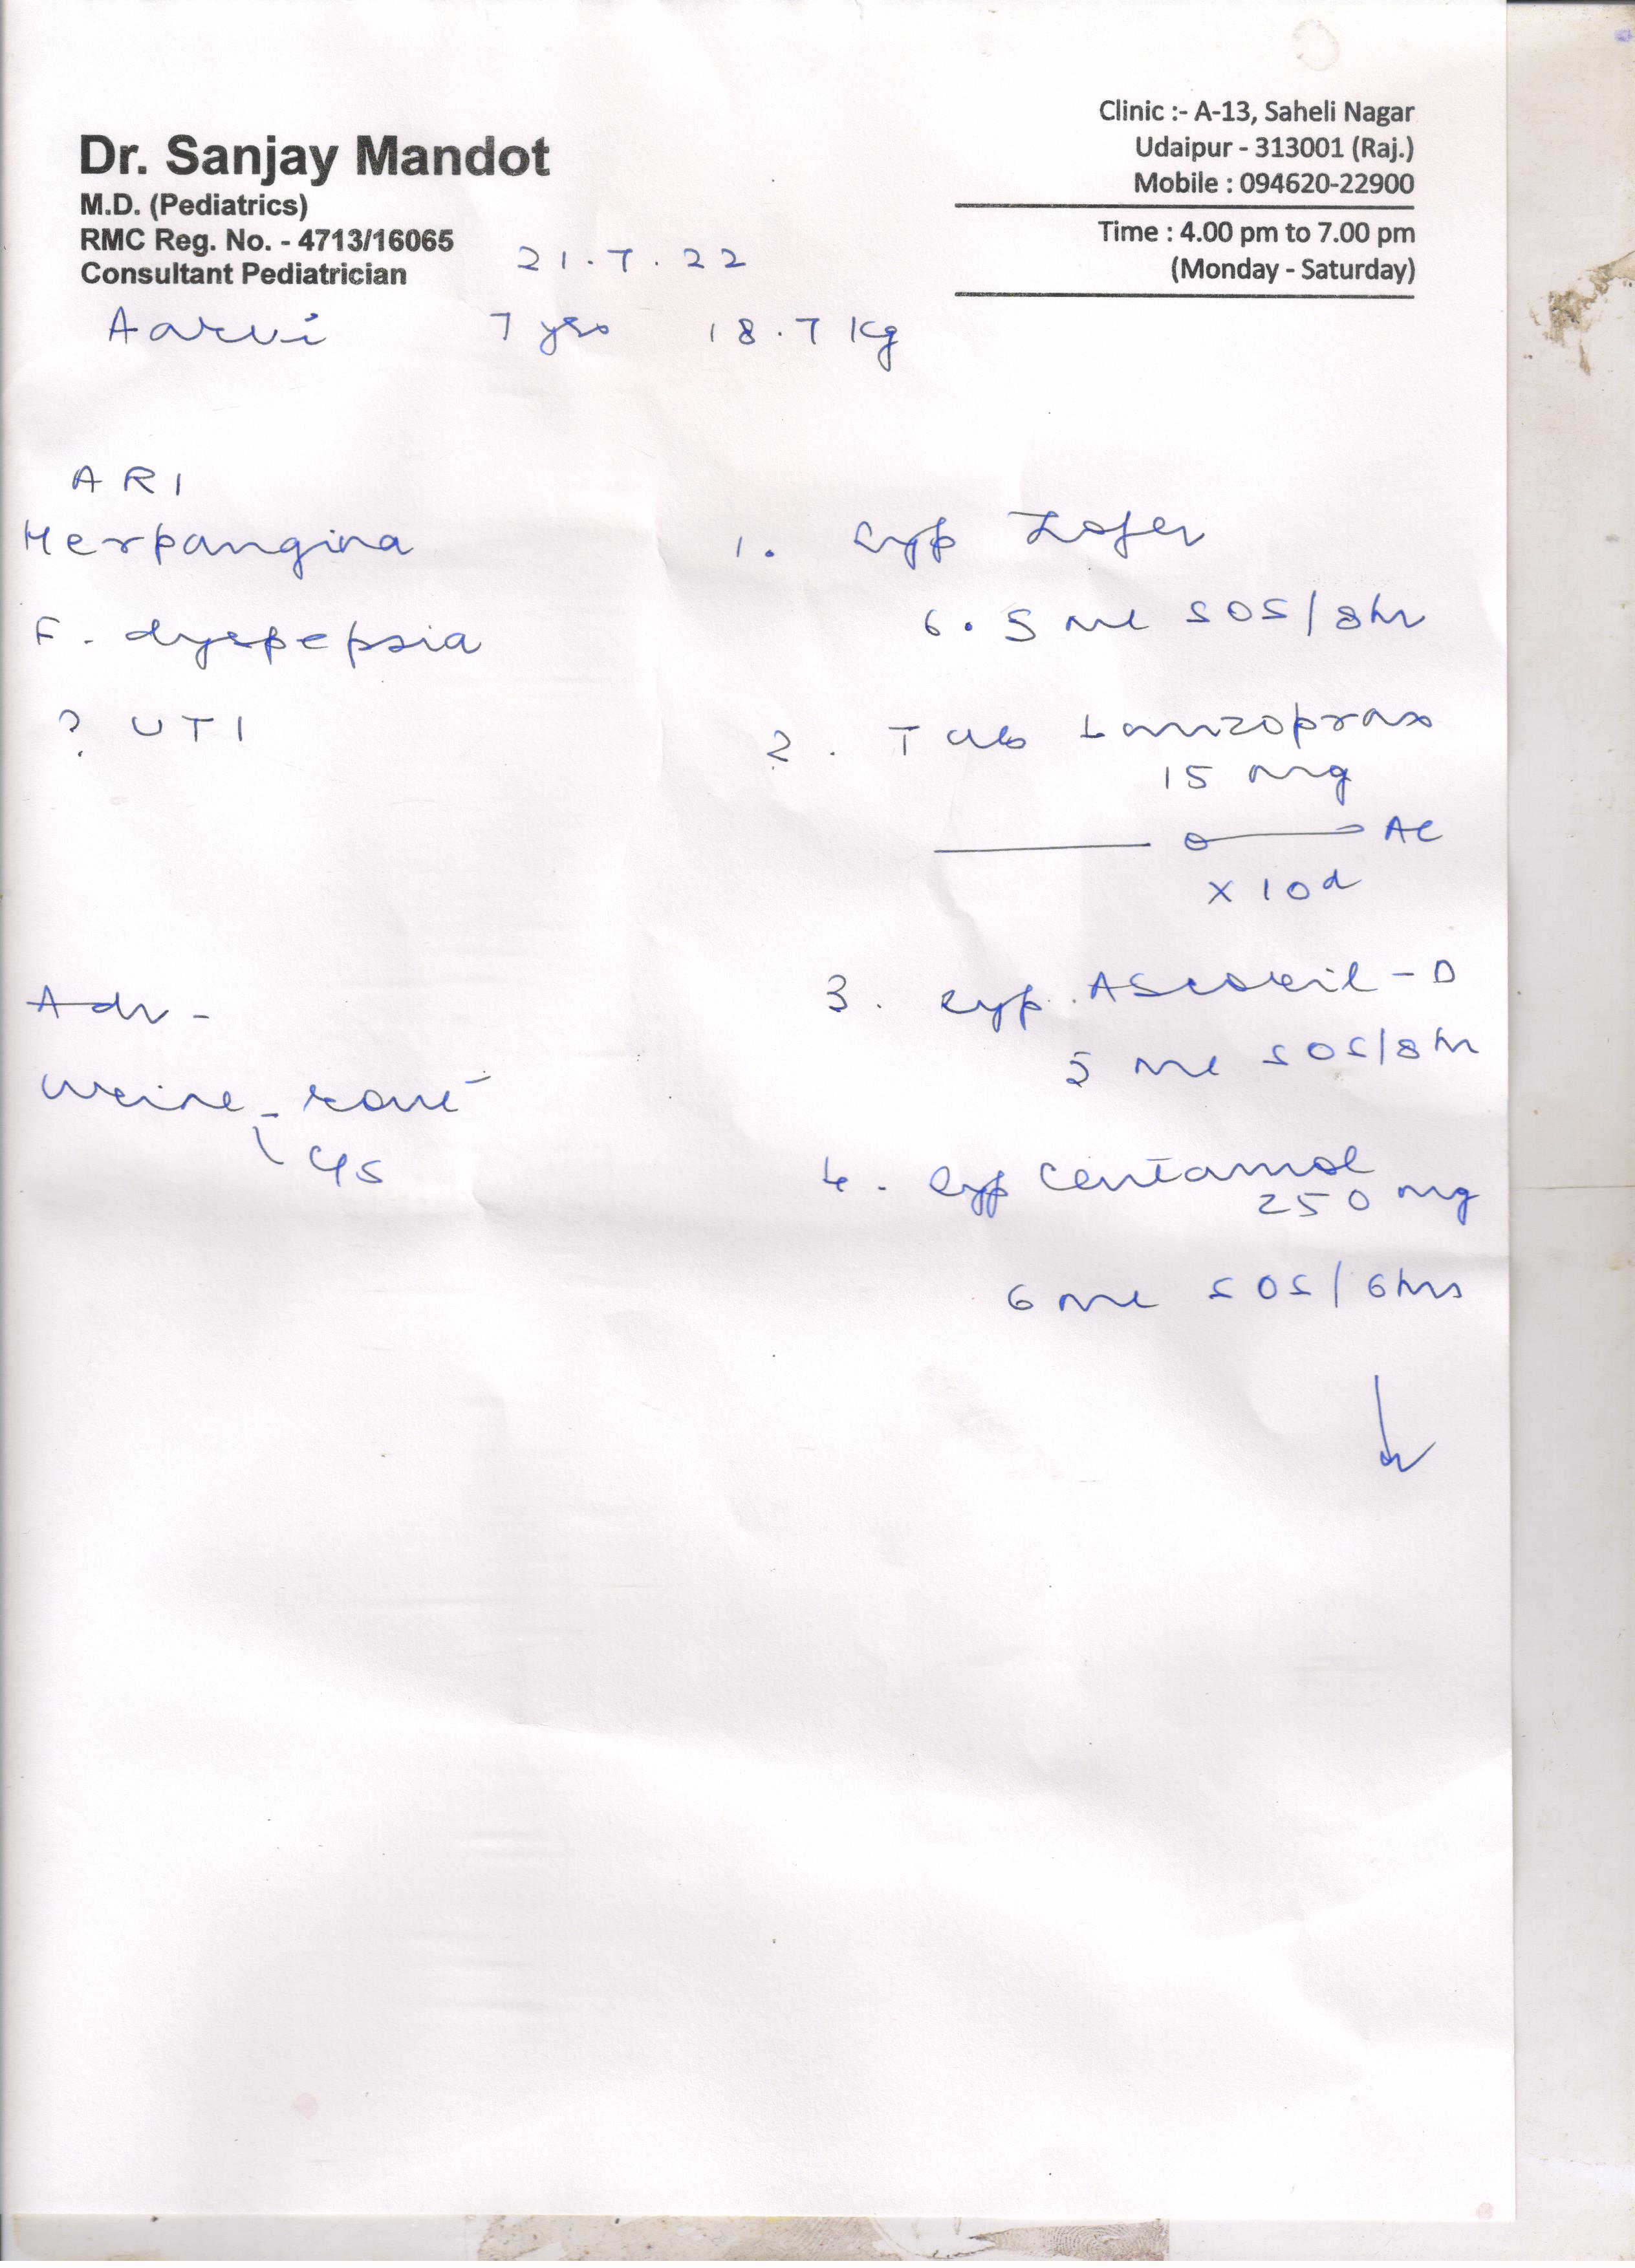 Dr. Sanjay Mandot
M.D. (Pediatrics)
RMC Reg. No. - 4713/16065
Consultant Pediatrician
Clinic :- A-13, Saheli Nagar
Udaipur - 313001 (Raj.)
Mobile : 094620-22900
Time : 4.00 pm to 7.00 pm
(Monday - Saturday)
21.7.22
Aarvi 7 yrs 18.7 kg
ARI
Herpangina
F. dyspepsia
? UTI
Adv -
Urine - rout
c/s
1. Syp Zofer
6.5 ml SOS/8hr
2. Tab Lanzoprax
15 mg
AC
x 10d
3. Syp. Ascoril-D
5 ml SOS/8hr
4. Syp Centamol
250 mg
6 ml SOS/6hrs